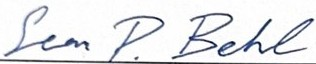 Sean P. Behl